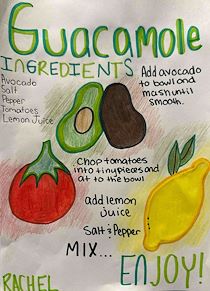 GUACAMOLE
INGREDIENTS
Avocado
Salt
Pepper
Tomatoes
Lemon Juice
Add avocado
to bowl and
mash until
smooth.
Chop tomatoes
into tiny pieces and
at to the bowl
add lemon
juice
Salt & Pepper
MIX...
ENJOY!
RACHEL